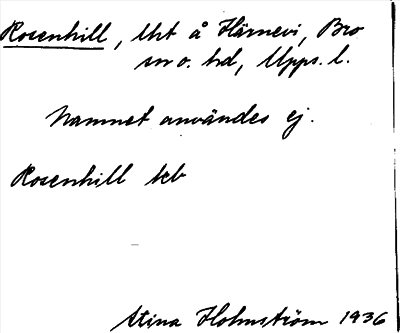 Rosenhill, lht å Härnevi, Bro
sn o. hd, Upps. l.
Namnet användes ej.
Rosenhill tcb
Stina Holmström 1936